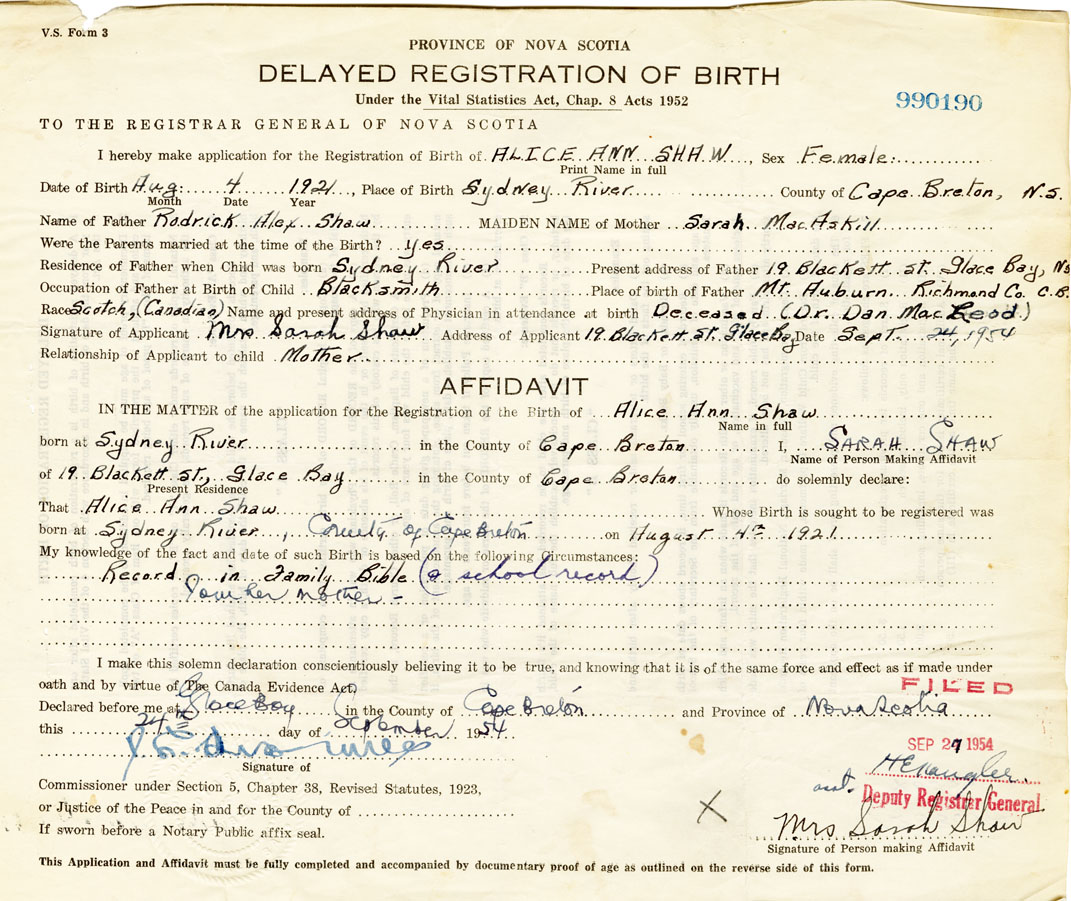 V.S. Form 3
PROVINCE OF NOVA SCOTIA
DELAYED REGISTRATION OF BIRTH
Under the Vital Statistics Act, Chap. 8 Acts 1952
990190
TO THE REGISTRAR GENERAL OF NOVA SCOTIA
I hereby make application for the Registration of Birth of ALICE ANN SHAW, Sex Female
Print Name in full
Date of Birth Aug. 4 1921, Place of Birth Sydney River County of Cape Breton, N.S.
Month Date Year
Name of Father Rodrick Alex Shaw MAIDEN NAME of Mother Sarah MacAskill
Were the Parents married at the time of the Birth? yes
Residence of Father when Child was born Sydney River Present address of Father 19 Blackett St. Glace Bay, NS
Occupation of Father at Birth of Child Blacksmith Place of birth of Father Mt. Auburn Richmond Co. C.B.
Race Scotch, (Canadian) Name and present address of Physician in attendance at birth Deceased (Dr. Dan MacLeod)
Signature of Applicant Mrs Sarah Shaw Address of Applicant 19 Blackett St. Glace Bay Date Sept. 24, 1954
Relationship of Applicant to child Mother
AFFIDAVIT
IN THE MATTER of the application for the Registration of the Birth of Alice Ann Shaw
Name in full
born at Sydney River in the County of Cape Breton I, SARAH SHAW
Name of Person Making Affidavit
of 19 Blackett St., Glace Bay in the County of Cape Breton do solemnly declare:
Present Residence
That Alice Ann Shaw Whose Birth is sought to be registered was
born at Sydney River, County of Cape Breton on August 4th 1921
My knowledge of the fact and date of such Birth is based on the following Circumstances:
Record in Family Bible (a school record)
I am her mother -
I make this solemn declaration conscientiously believing it to be true, and knowing that it is of the same force and effect as if made under
oath and by virtue of The Canada Evidence Act.
FILED
Declared before me at Glace Bay in the County of Cape Breton and Province of Nova Scotia
this 24th day of September 1954
SEP 29 1954
Signature of
asst. Deputy Registrar General
Commissioner under Section 5, Chapter 38, Revised Statutes, 1923,
or Justice of the Peace in and for the County of
X Mrs Sarah Shaw
If sworn before a Notary Public affix seal.
Signature of Person making Affidavit
This Application and Affidavit must be fully completed and accompanied by documentary proof of age as outlined on the reverse side of this form.